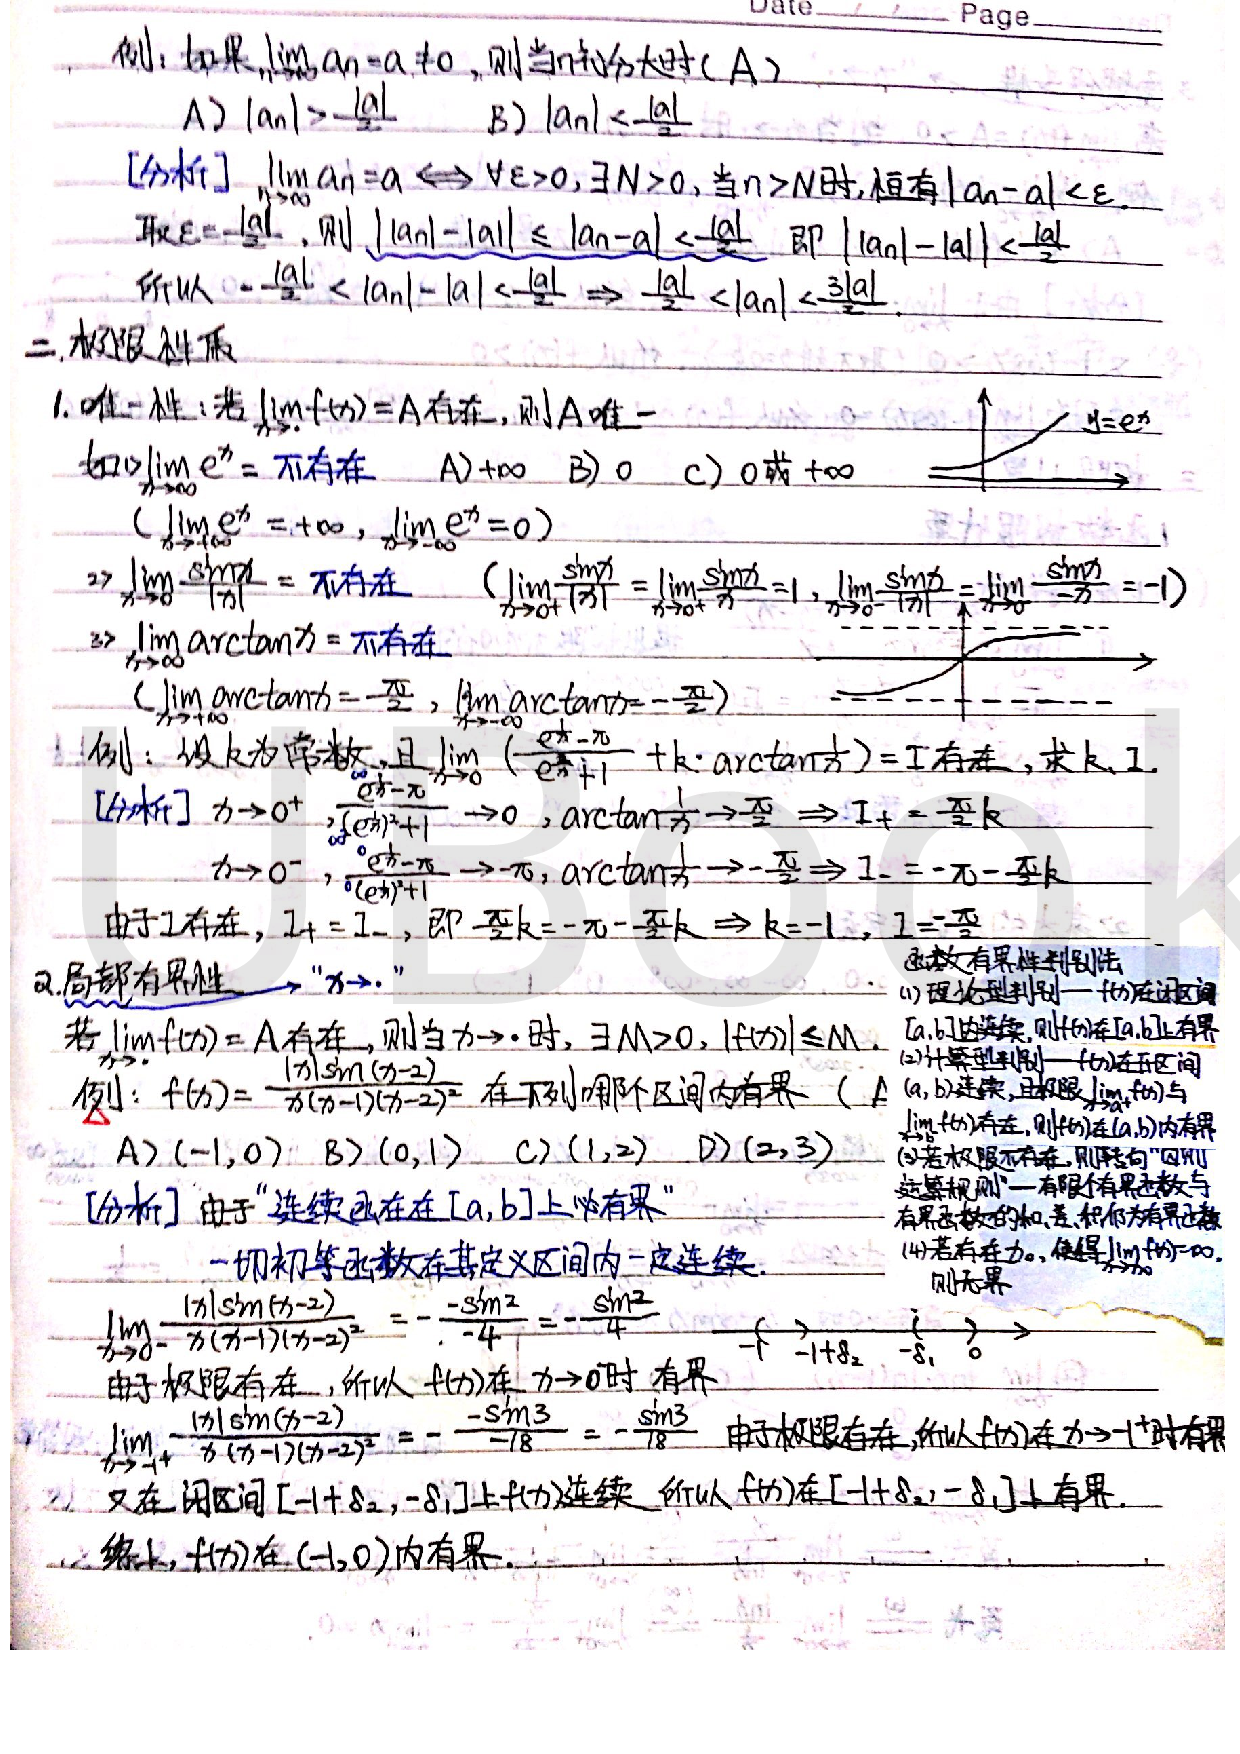 Date / / Page
例：如果 lim_{n→∞} an = a ≠ 0，则当n充分大时（A）
A）|an| > |a|/2 B）|an| < |a|/2
[分析] lim_{n→∞} an = a ⟺ ∀ε>0，∃N>0，当n>N时，恒有|an-a|<ε.
取ε=|a|/2，则 ||an|-|a|| ≤ |an-a| < |a|/2 即 ||an|-|a|| < |a|/2
所以 -|a|/2 < |an|-|a| < |a|/2 ⇒ |a|/2 < |an| < 3|a|/2.
二.极限性质
1. 唯一性：若 lim_{x→·} f(x) = A存在，则A唯一
如1> lim_{x→∞} e^x = 不存在 A）+∞ B）0 C）0或+∞
y=e^x
（lim_{x→+∞} e^x = +∞，lim_{x→-∞} e^x = 0）
2> lim_{x→0} sinx/|x| = 不存在 （lim_{x→0+} sinx/|x| = lim_{x→0+} sinx/x = 1，lim_{x→0-} sinx/|x| = lim_{x→0-} sinx/-x = -1）
3> lim_{x→∞} arctanx = 不存在
（lim_{x→+∞} arctanx = π/2，lim_{x→-∞} arctanx = -π/2）
例：设k为常数，且 lim_{x→0} （(e^{1/x}-π)/(e^{2/x}+1) + k·arctan1/x）= I存在，求k、I.
[分析] x→0+，(e^{1/x}-π)/((e^{1/x})²+1) → 0，arctan1/x → π/2 ⇒ I+ = π/2 k
x→0-，(e^{1/x}-π)/((e^{1/x})²+1) → -π，arctan1/x → -π/2 ⇒ I- = -π-π/2 k
由于I存在，I+ = I-，即 π/2 k = -π-π/2 k ⇒ k=-1，I=-π/2
2.局部有界性 → "x→·"
若 lim_{x→·} f(x) = A存在，则当x→·时，∃M>0，|f(x)|≤M.
例：f(x) = |x|sin(x-2)/x(x-1)(x-2)² 在下列哪个区间内有界（A
A）(-1,0) B）(0,1) C）(1,2) D）(2,3)
[分析] 由于"连续函在在[a,b]上必有界"
一切初等函数在其定义区间内一定连续.
lim_{x→0-} |x|sin(x-2)/x(x-1)(x-2)² = - -sin2/-4 = -sin2/4
-1 -1+δ₂ -δ₁ 0
由于极限存在，所以f(x)在x→0-时有界
lim_{x→-1+} |x|sin(x-2)/x(x-1)(x-2)² = - -sin3/-18 = -sin3/18 由于极限存在，所以f(x)在x→-1+时有界
又在闭区间[-1+δ₂,-δ₁]上f(x)连续 所以f(x)在[-1+δ₂,-δ₁]上有界.
综上，f(x)在(-1,0)内有界.
函数有界性判别法
(1)理论型判别——f(x)在闭区间
[a,b]内连续，则f(x)在[a,b]上有界
(2)计算型判别——f(x)在开区间
(a,b)连续，且极限 lim_{x→a+} f(x)与
lim_{x→b-} f(x)存在，则f(x)在(a,b)内有界
(3)若极限不存在，则转向"四则
运算规则"——有限个有界函数与
有界函数的和、差、积仍为有界函数
(4)若存在x₀，使得 lim_{x→x₀} f(x)=∞.
则无界
UBook